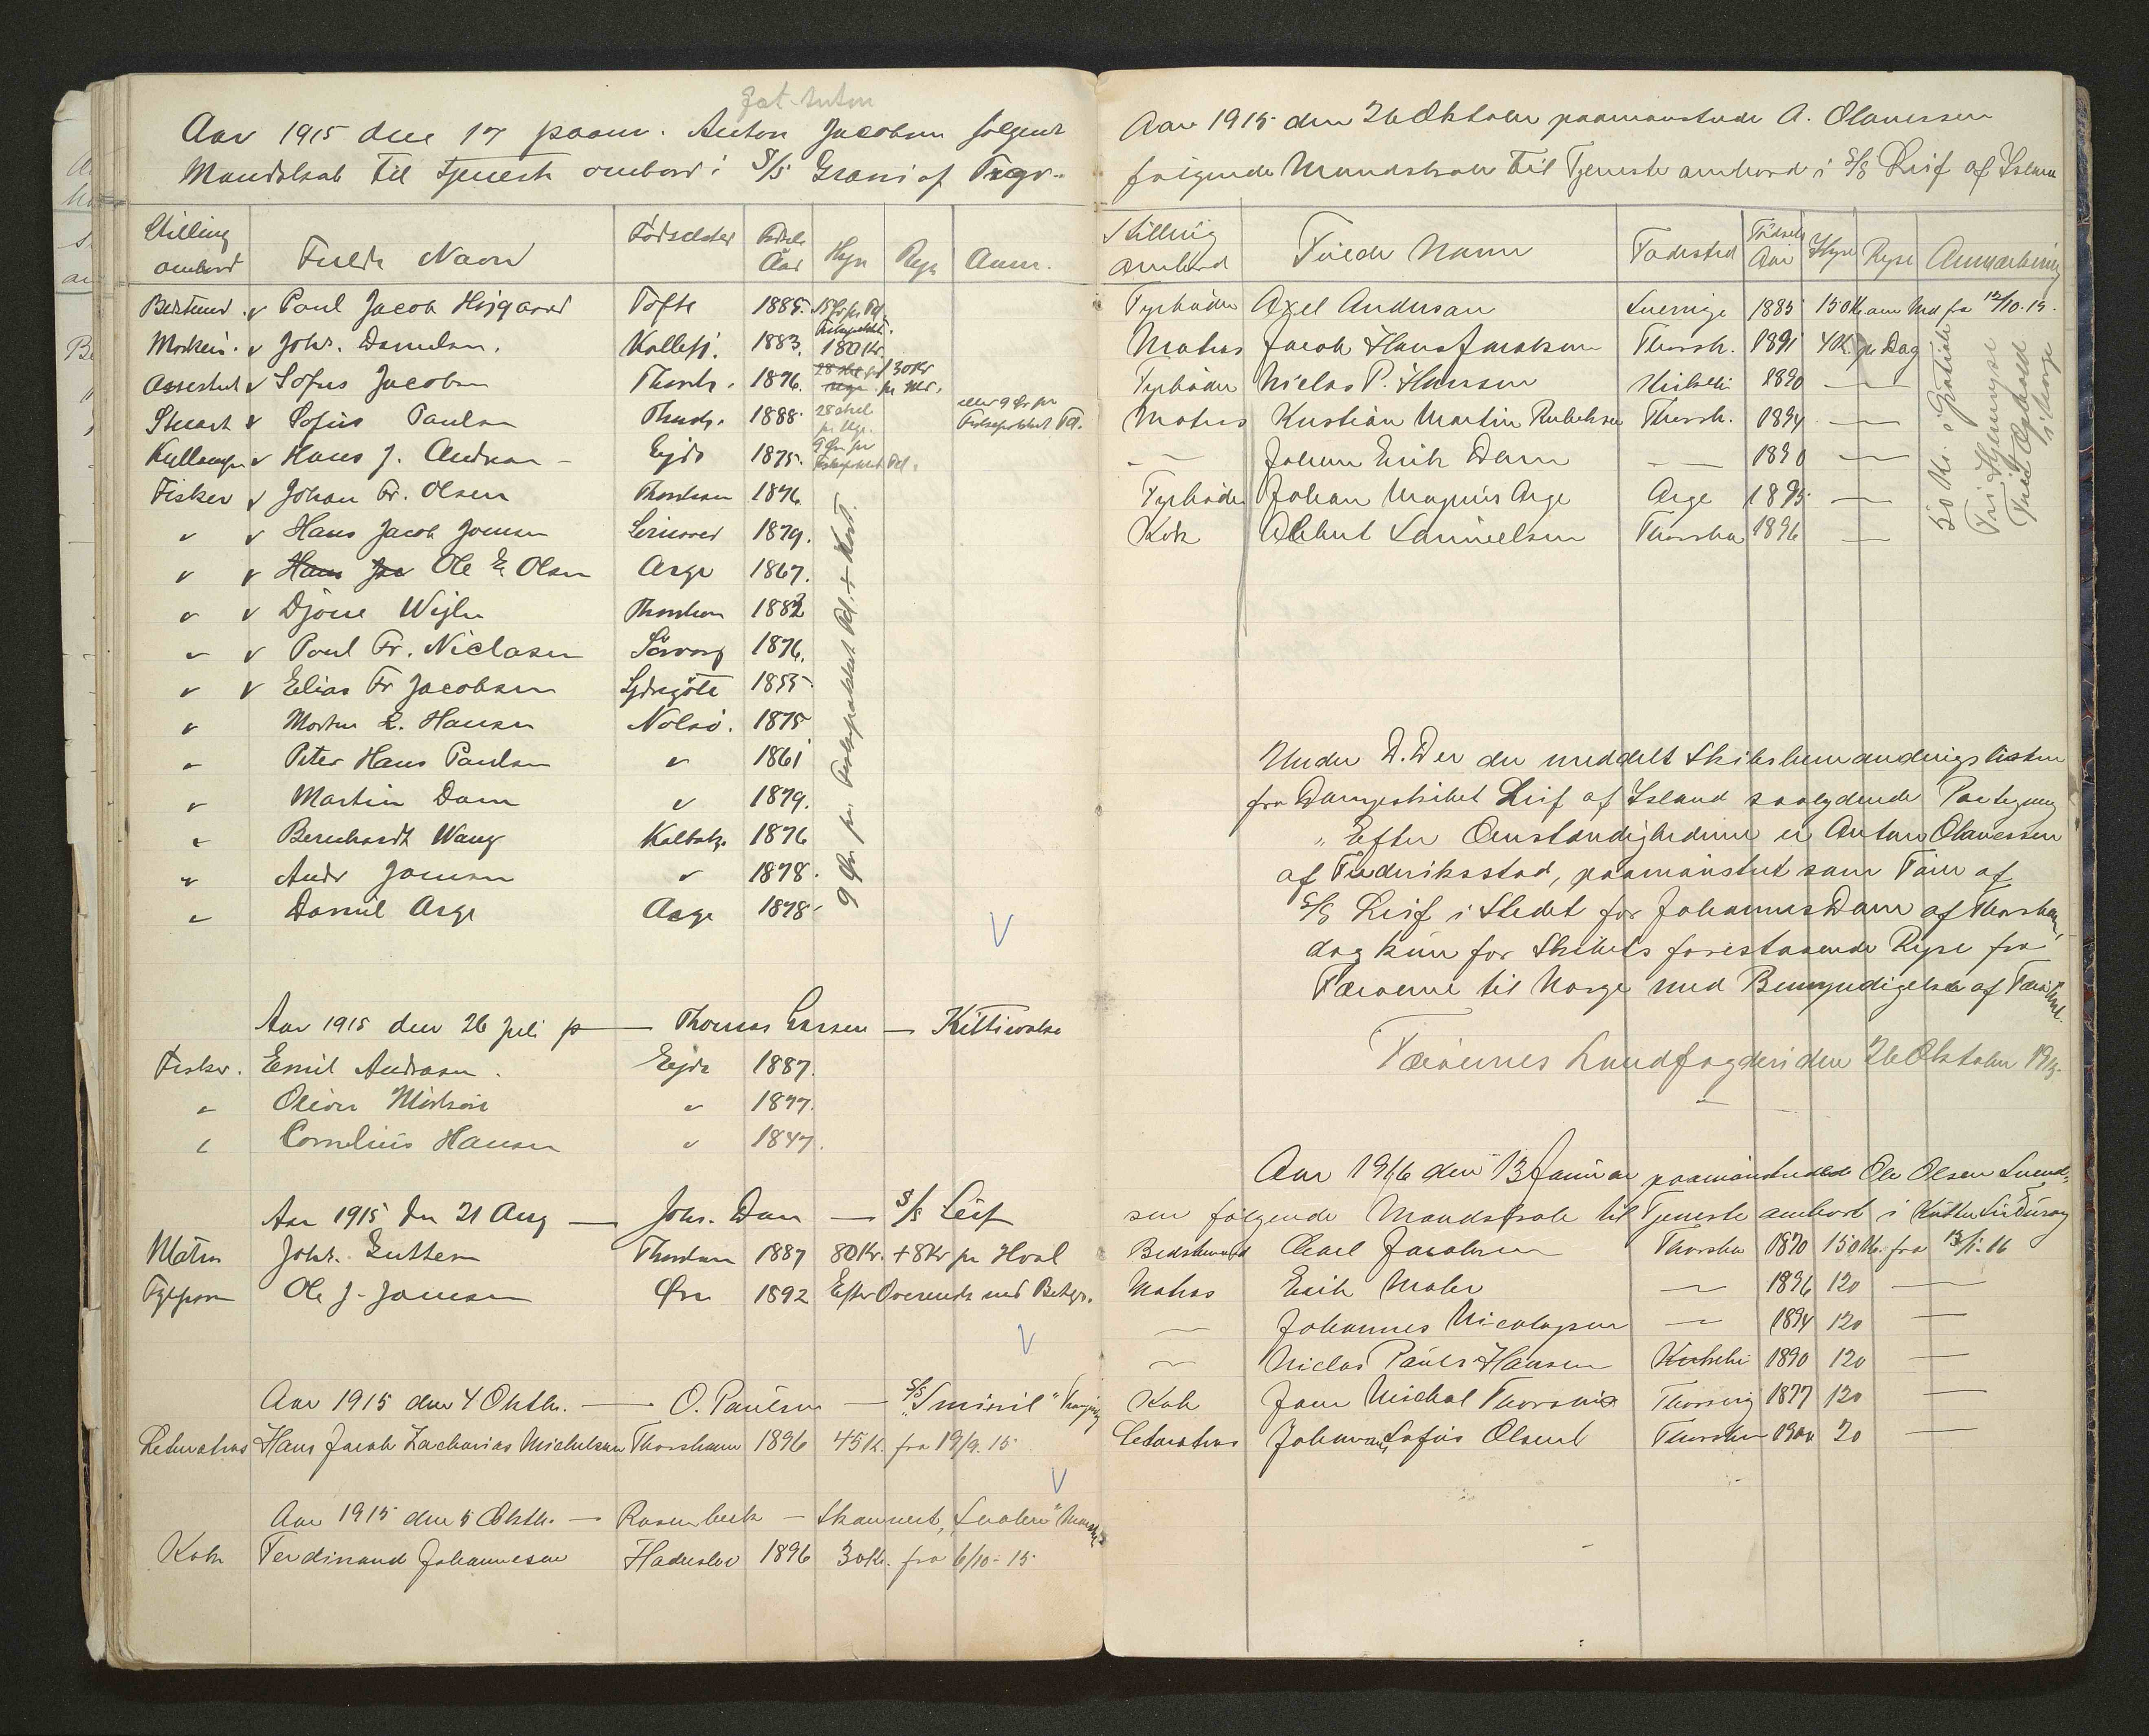 Aar 1915 den 17 paam. Anton Jacobsen følgende
Mandskab til tjeneste ombord i S/S Grani af
Stilling ombord Fulde Navn Fødselssted Fødsels Aar Hyre Rejse Anm.
Bestmand v Poul Jacob Højgaard Tofte 1885. 15 Ør pr
Johs. Danielsen. Kollefj. 1883. 180 Kr.
Assistent v Sofus Jacobsen Thorsh. 1876. 30 Kr
Stuart v Sofus Paulsen Thorsh. 1888. eller 9 Ør pr
v Hans J. Andreasen Ejde 1875. 9 Ør pr
Fisker v Johan Fr. Olsen Thorshavn 1876.
" v Hans Jacob Joensen 1879.
" v Ole E. Olsen Arge 1867.
" v Djone Wejhe Thorshavn 1882
" v Poul Fr. Niclasen Sørvaag 1876.
" v Elias Fr Jacobsen Sydregøte 1855.
" Morten L. Hansen Nolsø. 1875
" Peter Hans Paulsen " 1861
" Martin Dam " 1879.
" Bernhardt Wang Kalbak. 1876
" Andr Joensen " 1878.
" Daniel Arge Arge 1878.
9 Ør pr. Fiskepakket Pd. + Kost.
Aar 1915 den 26 Juli p — Thomas Larsen — Kittiwake
Fisker. Emil Andreasen. Ejde 1887.
" Oliver " 1877.
" Cornelius Hansen " 1847.
Aar 1915 den 21 Aug — Johs. Dam — S/S Leif
Matros Johs. Guttesen Thorshavn 1887 80 Kr. + 8 Kr pr Hval
Ole J. Joensen Øre 1892 Efter Overensk med Betyr.
Aar 1915 den 4 Oktb. — O. Paulsen — S/S "Smiril"
Letmatros Hans Jacob Zacharias Michelsen Thorshavn 1896 45 Kr. fra 19/9. 15
Aar 1915 den 5 Oktb. — Rosenbeck — Skonnert, "Svalen"
Kok Ferdinand Johannesen Haderslev 1896 30 Kr. fra 6/10-15
Aar 1915 den 26 Oktober paamønstrede A. Olavessen
følgende Mandskab til Tjeneste ombord i S/S Leif af Island
Stilling ombord Fulde Navn Fødested Fødsels Aar Hyre Rejse Anmærkning
Fyrbøder Axel Andersson Sverrige 1885 150 Kr. om Md fra 12/10. 15.
Matros Jacob Hans Jacobsen Thorsh. 1891 4 Kr. pr Dag
Fyrbøder Niclas P. Hansen Kirkebø 1890 —
Matros Kristian Martin Rubeksen Thorsh. 1894 —
— Johan Erik Dam — 1890 —
Fyrbøder Johan Magnus Arge Arge 1895 —
Kok Albert Samuelsen Thorshavn 1896 —
50 Kr. i Gratiale
Fri Hjemrejse
Frit Ophold
i Norge
Under D.D er der meddelt Skibsbemandingslisten
fra Dampskibet Leif af Island saalydende Paategning
"Efter Omstændighederne er Anton Olavessen
af Frederiksstad, paamønstret som Fører af
S/S Leif i Stedet for Johannes Dam af Thorshavn,
dog kun for Skibets forestaaende Rejse fra
Færøerne til Norge med Bemyndigelse af
Færøernes Landfogderi den 26 Oktober 1915.
Aar 1916 den 13 Januar paamønstrede Ole Olsen Svend-
sen følgende Mandskab til Tjeneste ombord i Kutter
Bedstemand Carl Jacobsen Thorshavn 1870 150 Kr. fra 13/1. 16
Matros Erik Mohr — 1896 120 —
— Johannes Nicolajsen — 1894 120 —
— Niclas Pauli Hansen Kirkebø 1890 120 —
Kok Joen Michal 1877 120 —
Letmatros Johannes Sofus Olsen Thorshavn 1900 20 —